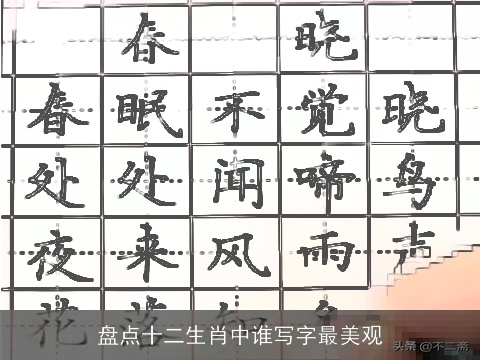 春晓
春眠不觉晓
处处闻啼鸟
夜来风雨声
花落知
盘点十二生肖中谁写字最美观
头条 @不二斋